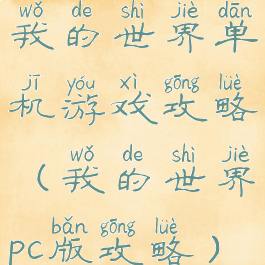 wǒ de shì jiè dān
我的世界单
jī yóu xì gōng lüè
机游戏攻略
wǒ de shì jiè
（我的世界
bǎn gōng lüè
PC版攻略）